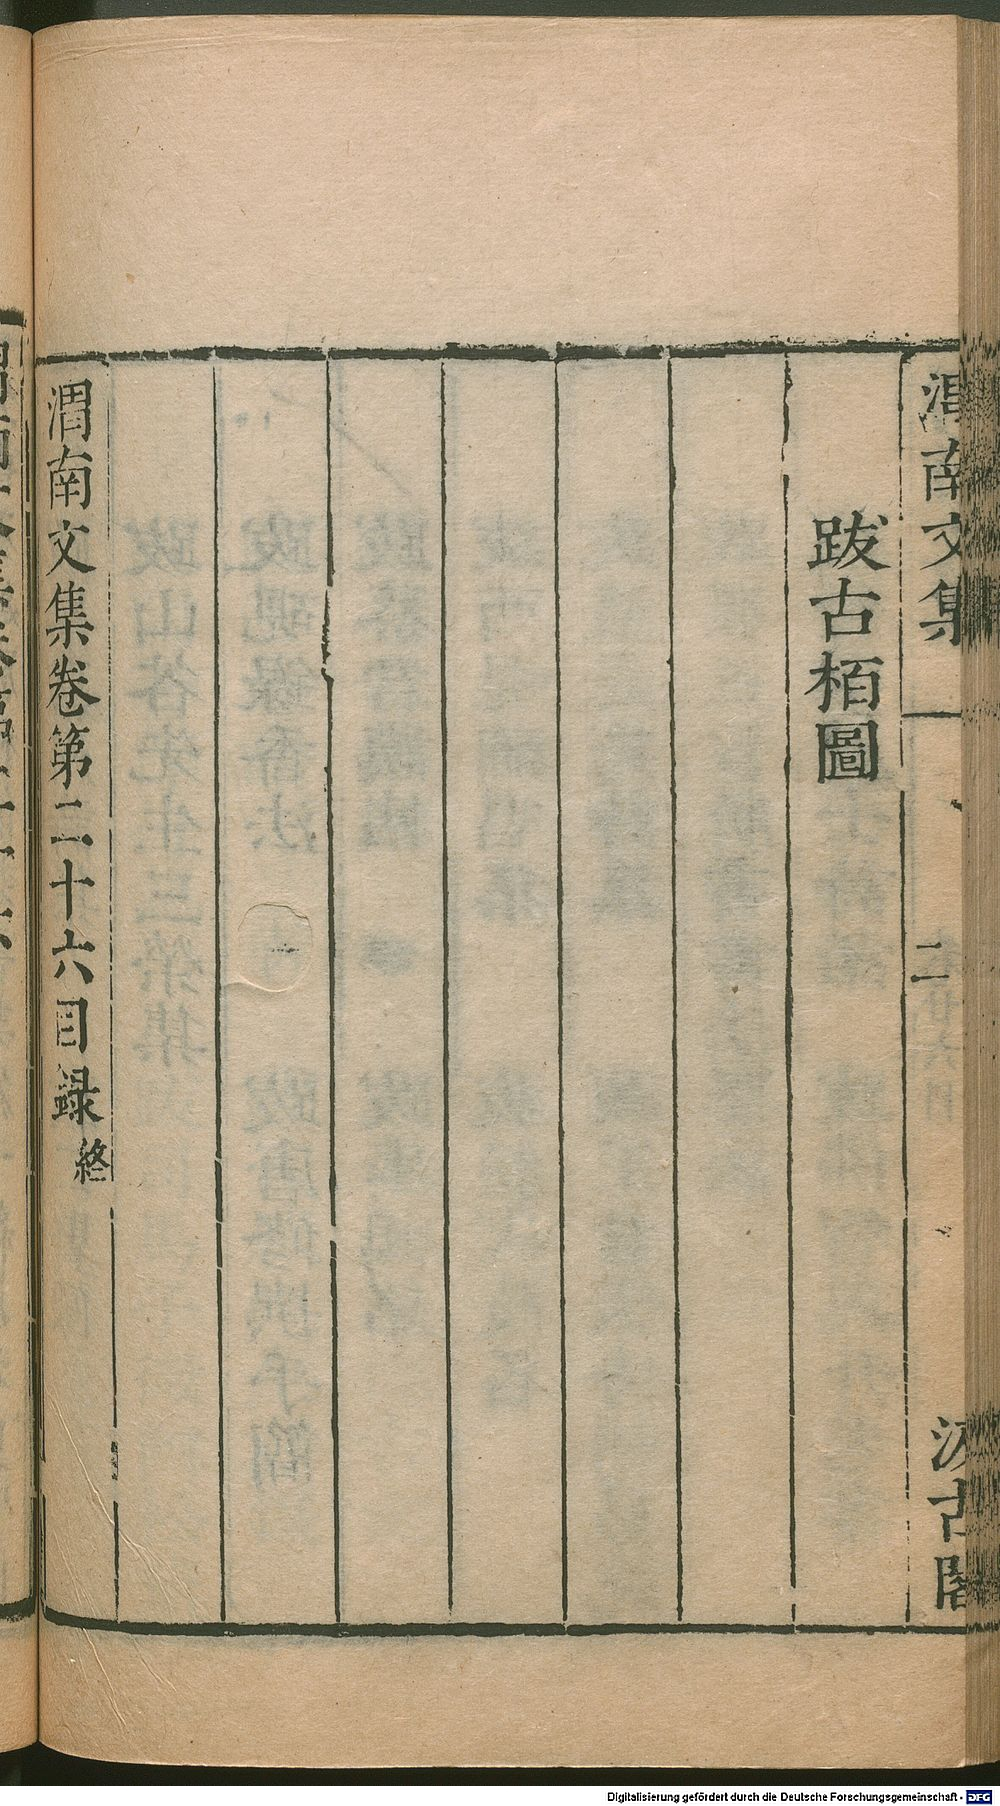 渭南文集
二
汲古閣
跋古栢圖
渭南文集卷第二十六目録終
Digitalisierung gefördert durch die Deutsche Forschungsgemeinschaft - DFG